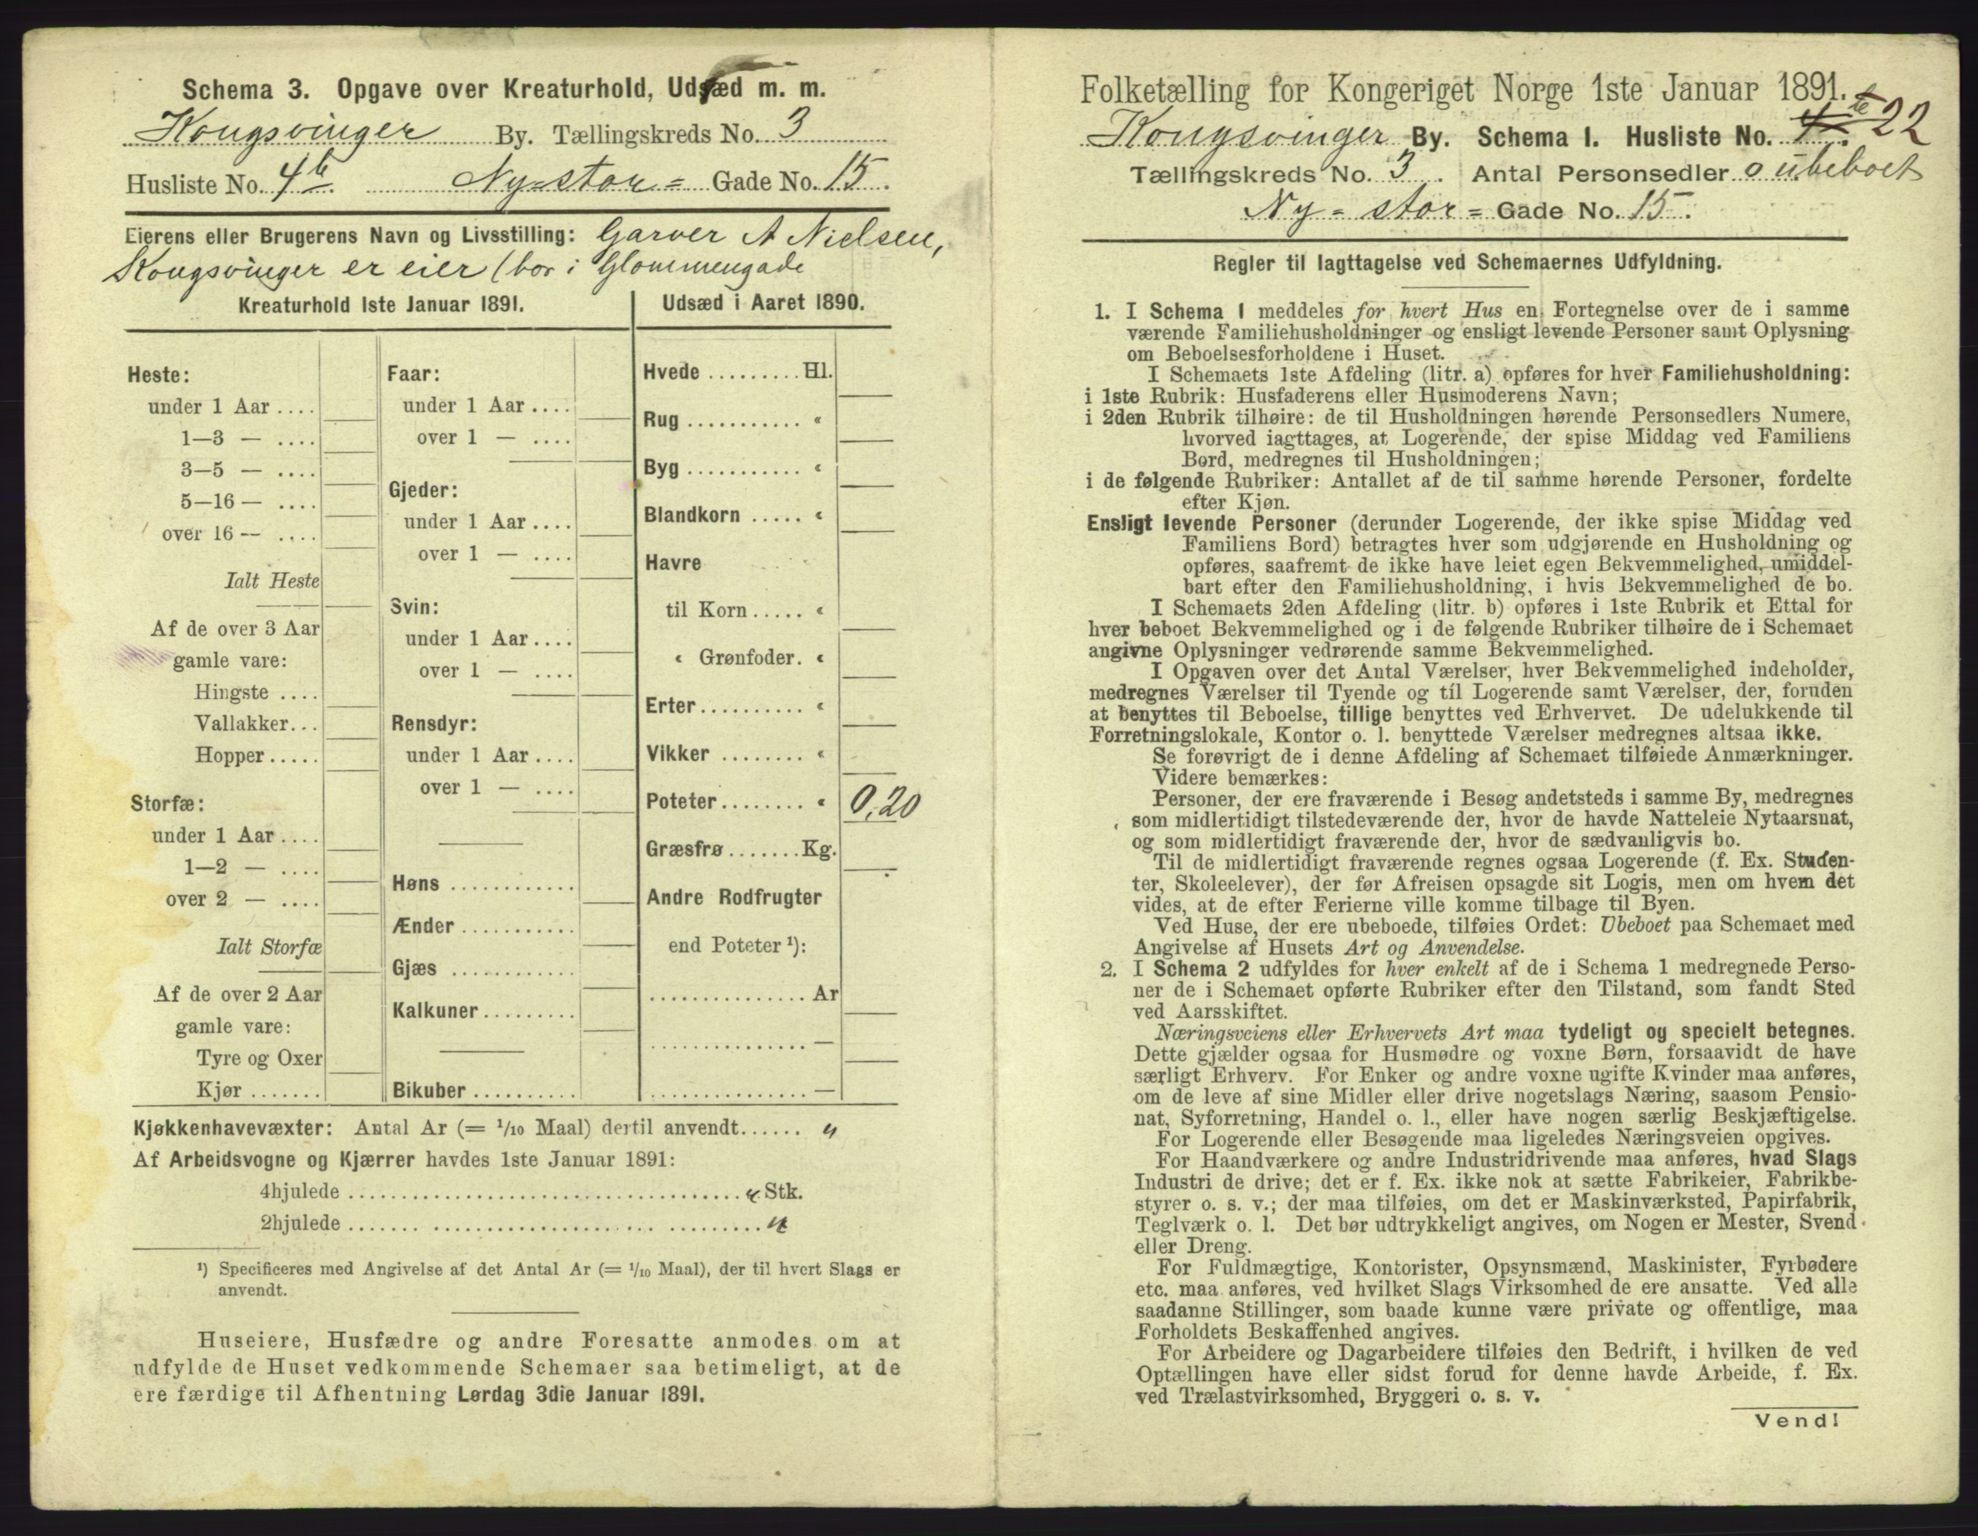 Schema 3. Opgave over Kreaturhold, Udsæd m. m.
Kongsvinger By. Tællingskreds No. 3
Husliste No. 4b. Ny-stor- Gade No. 15.
Eierens eller Brugerens Navn og Livsstilling: Garver A Nielsen,
Kongsvinger er eier (bor i Glommengade
Kreaturhold 1ste Januar 1891.
Heste:
under 1 Aar ....
1—3 — ....
3—5 — ....
5—16 — ....
over 16 — ....
Ialt Heste
Af de over 3 Aar
gamle vare:
Hingste ....
Vallakker...
Hopper.....
Storfæ:
under 1 Aar....
1—2 — ....
over 2 — ....
Ialt Storfæ
Af de over 2 Aar
gamle vare:
Tyre og Oxer
Kjør .......
Faar:
under 1 Aar....
over 1 — ....
Gjeder:
under 1 Aar....
over 1 — ....
Svin:
under 1 Aar....
over 1 — ....
Rensdyr:
under 1 Aar....
over 1 — ....
Høns ............
Ænder...........
Gjæs ............
Kalkuner.........
Bikuber ..........
Udsæd i Aaret 1890.
Hvede .........Hl.
Rug ........... «
Byg ........... «
Blandkorn ..... «
Havre
til Korn ..... «
« Grønfoder. «
Erter.......... «
Vikker ........ «
Poteter........ « 0,20
Græsfrø.......Kg.
Andre Rodfrugter
end Poteter ¹):
...............Ar
............... —
............... —
Kjøkkenhavevæxter: Antal Ar (= 1/10 Maal) dertil anvendt...... "
Af Arbeidsvogne og Kjærrer havdes 1ste Januar 1891:
4hjulede ...................................... " Stk.
2hjulede ...................................... "
¹) Specificeres med Angivelse af det Antal Ar (= 1/10 Maal), der til hvert Slags er
anvendt.
Huseiere, Husfædre og andre Foresatte anmodes om at
udfylde de Huset vedkommende Schemaer saa betimeligt, at de
ere færdige til Afhentning Lørdag 3die Januar 1891.
Folketælling for Kongeriget Norge 1ste Januar 1891.
Kongsvinger By. Schema 1. Husliste No. 22
Tællingskreds No. 3. Antal Personsedler 0 ubeboet
Ny-stor- Gade No. 15.
Regler til Iagttagelse ved Schemaernes Udfyldning.
1. I Schema 1 meddeles for hvert Hus en Fortegnelse over de i samme
værende Familiehusholdninger og ensligt levende Personer samt Oplysning
om Beboelsesforholdene i Huset.
I Schemaets 1ste Afdeling (litr. a) opføres for hver Familiehusholdning:
i 1ste Rubrik: Husfaderens eller Husmoderens Navn;
i 2den Rubrik tilhøire: de til Husholdningen hørende Personsedlers Numere,
hvorved iagttages, at Logerende, der spise Middag ved Familiens
Bord, medregnes til Husholdningen;
i de følgende Rubriker: Antallet af de til samme hørende Personer, fordelte
efter Kjøn.
Ensligt levende Personer (derunder Logerende, der ikke spise Middag ved
Familiens Bord) betragtes hver som udgjørende en Husholdning og
opføres, saafremt de ikke have leiet egen Bekvemmelighed, umiddel-
bart efter den Familiehusholdning, i hvis Bekvemmelighed de bo.
I Schemaets 2den Afdeling (litr. b) opføres i 1ste Rubrik et Ettal for
hver beboet Bekvemmelighed og i de følgende Rubriker tilhøire de i Schemaet
angivne Oplysninger vedrørende samme Bekvemmelighed.
I Opgaven over det Antal Værelser, hver Bekvemmelighed indeholder,
medregnes Værelser til Tyende og til Logerende samt Værelser, der, foruden
at benyttes til Beboelse, tillige benyttes ved Erhvervet. De udelukkende til
Forretningslokale, Kontor o. l. benyttede Værelser medregnes altsaa ikke.
Se forøvrigt de i denne Afdeling af Schemaet tilføiede Anmærkninger.
Videre bemærkes:
Personer, der ere fraværende i Besøg andetsteds i samme By, medregnes
som midlertidigt tilstedeværende der, hvor de havde Natteleie Nytaarsnat,
og som midlertidigt fraværende der, hvor de sædvanligvis bo.
Til de midlertidigt fraværende regnes ogsaa Logerende (f. Ex. Studen-
ter, Skoleelever), der før Afreisen opsagde sit Logis, men om hvem det
vides, at de efter Ferierne ville komme tilbage til Byen.
Ved Huse, der ere ubeboede, tilføies Ordet: Ubeboet paa Schemaet med
Angivelse af Husets Art og Anvendelse.
2. I Schema 2 udfyldes for hver enkelt af de i Schema 1 medregnede Perso-
ner de i Schemaet opførte Rubriker efter den Tilstand, som fandt Sted
ved Aarsskiftet.
Næringsveiens eller Erhvervets Art maa tydeligt og specielt betegnes.
Dette gjælder ogsaa for Husmødre og voxne Børn, forsaavidt de have
særligt Erhverv. For Enker og andre voxne ugifte Kvinder maa anføres,
om de leve af sine Midler eller drive nogetslags Næring, saasom Pensio-
nat, Syforretning, Handel o. l., eller have nogen særlig Beskjæftigelse.
For Logerende eller Besøgende maa ligeledes Næringsveien opgives.
For Haandværkere og andre Industridrivende maa anføres, hvad Slags
Industri de drive; det er f. Ex. ikke nok at sætte Fabrikeier, Fabrikbe-
styrer o. s. v.; der maa tilføies, om det er Maskinværksted, Papirfabrik,
Teglværk o. l. Det bør udtrykkeligt angives, om Nogen er Mester, Svend
eller Dreng.
For Fuldmægtige, Kontorister, Opsynsmænd, Maskinister, Fyrbødere
etc. maa anføres, ved hvilket Slags Virksomhed de ere ansatte. Ved alle
saadanne Stillinger, som baade kunne være private og offentlige, maa
Forholdets Beskaffenhed angives.
For Arbeidere og Dagarbeidere tilføies den Bedrift, i hvilken de ved
Optællingen have eller sidst forud for denne havde Arbeide, f. Ex.
ved Trælastvirksomhed, Bryggeri o. s. v.
Vend!